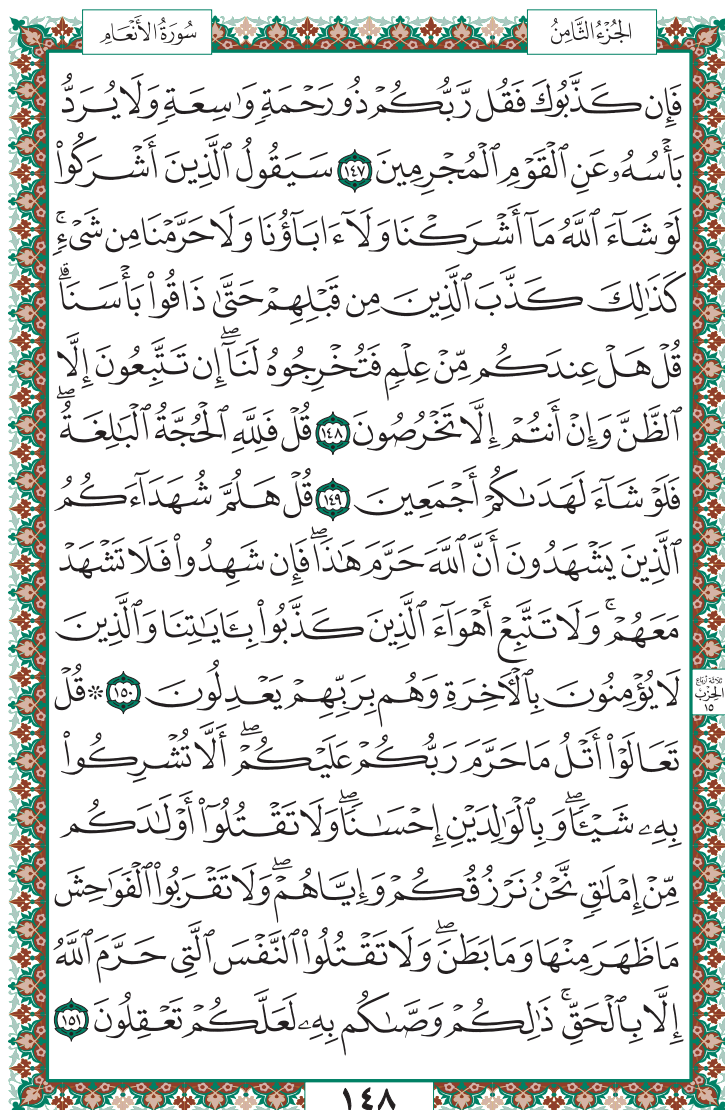 سُورَةُ الأَنْعَام
الجُزْءُ الثَّامِنُ
فَإِن كَذَّبُوكَ فَقُل رَّبُّكُمْ ذُو رَحْمَةٍ وَٰسِعَةٍ وَلَا يُرَدُّ
بَأْسُهُۥ عَنِ ٱلْقَوْمِ ٱلْمُجْرِمِينَ ١٤٧ سَيَقُولُ ٱلَّذِينَ أَشْرَكُوا۟
لَوْ شَآءَ ٱللَّهُ مَآ أَشْرَكْنَا وَلَآ ءَابَآؤُنَا وَلَا حَرَّمْنَا مِن شَىْءٍۚ
كَذَٰلِكَ كَذَّبَ ٱلَّذِينَ مِن قَبْلِهِمْ حَتَّىٰ ذَاقُوا۟ بَأْسَنَاۗ
قُلْ هَلْ عِندَكُم مِّنْ عِلْمٍ فَتُخْرِجُوهُ لَنَآۖ إِن تَتَّبِعُونَ إِلَّا
ٱلظَّنَّ وَإِنْ أَنتُمْ إِلَّا تَخْرُصُونَ ١٤٨ قُلْ فَلِلَّهِ ٱلْحُجَّةُ ٱلْبَٰلِغَةُۖ
فَلَوْ شَآءَ لَهَدَىٰكُمْ أَجْمَعِينَ ١٤٩ قُلْ هَلُمَّ شُهَدَآءَكُمُ
ٱلَّذِينَ يَشْهَدُونَ أَنَّ ٱللَّهَ حَرَّمَ هَٰذَاۖ فَإِن شَهِدُوا۟ فَلَا تَشْهَدْ
مَعَهُمْۚ وَلَا تَتَّبِعْ أَهْوَآءَ ٱلَّذِينَ كَذَّبُوا۟ بِـَٔايَٰتِنَا وَٱلَّذِينَ
لَا يُؤْمِنُونَ بِٱلْـَٔاخِرَةِ وَهُم بِرَبِّهِمْ يَعْدِلُونَ ١٥٠ ۞ قُلْ
ثلاثة أرباع
الحزب
١٥
تَعَالَوْا۟ أَتْلُ مَا حَرَّمَ رَبُّكُمْ عَلَيْكُمْۖ أَلَّا تُشْرِكُوا۟
بِهِۦ شَيْـًٔاۖ وَبِٱلْوَٰلِدَيْنِ إِحْسَٰنًاۖ وَلَا تَقْتُلُوٓا۟ أَوْلَٰدَكُم
مِّنْ إِمْلَٰقٍۢ نَّحْنُ نَرْزُقُكُمْ وَإِيَّاهُمْۖ وَلَا تَقْرَبُوا۟ ٱلْفَوَٰحِشَ
مَا ظَهَرَ مِنْهَا وَمَا بَطَنَۖ وَلَا تَقْتُلُوا۟ ٱلنَّفْسَ ٱلَّتِى حَرَّمَ ٱللَّهُ
إِلَّا بِٱلْحَقِّۚ ذَٰلِكُمْ وَصَّىٰكُم بِهِۦ لَعَلَّكُمْ تَعْقِلُونَ ١٥١
١٤٨